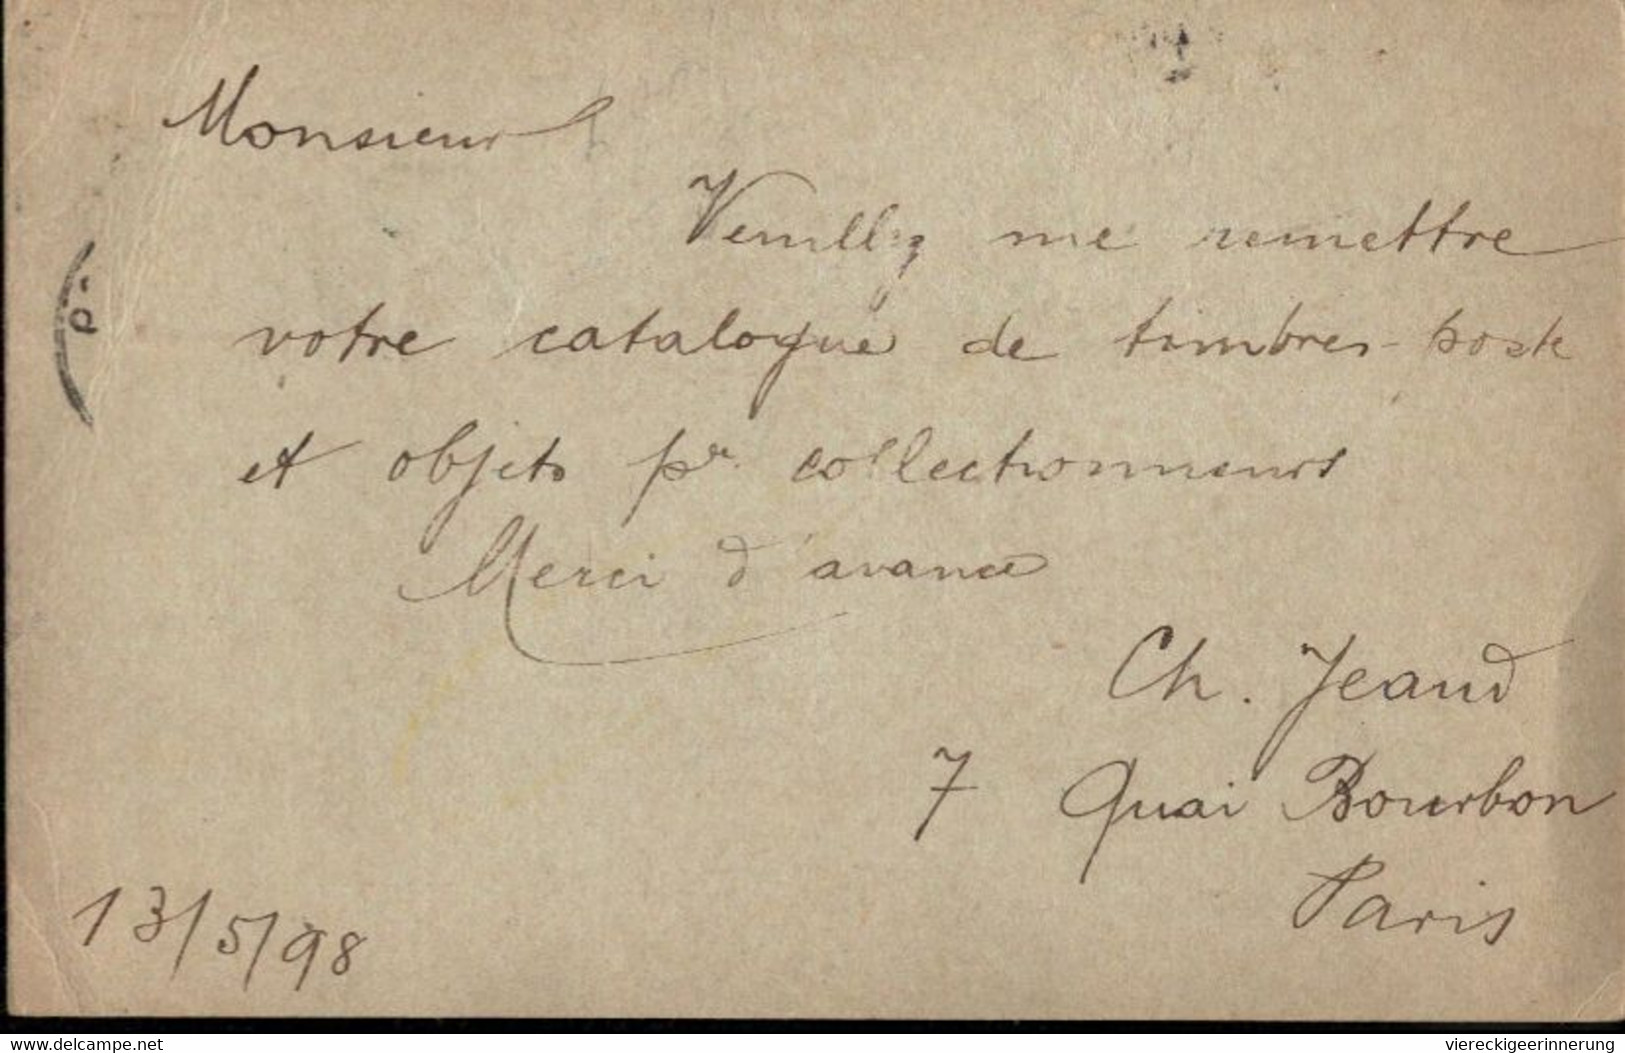 Monsieur
Veuillez me remettre
votre catalogue de timbres-poste
et objets pr. collectionneurs
Merci d'avance
Ch. Jeaud
7 Quai Bourbon
Paris
13/5/98
www.delcampe.net
viereckigeerinnerung